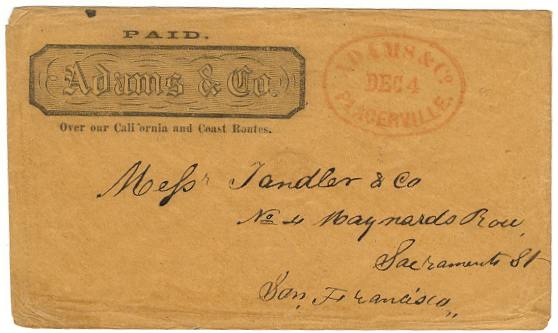 PAID.
Adams & Co.
Over our California and Coast Routes.
ADAMS & Co
DEC 4
PLACERVILLE.
Messr Tandler & Co
No 4 Maynards Row,
Sacramento St
San Francisco,